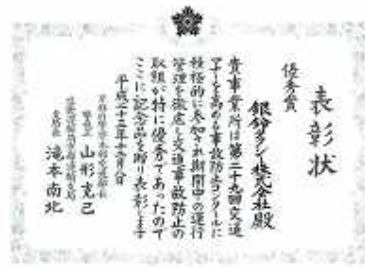 表彰状
優秀賞
銀鈴タクシー株式会社殿
貴事業所は第二十九回交通
マナーを高める事故防止コンクールに
積極的に参加され期間中の運行
管理を徹底し交通事故防止の
取組が特に優秀であったので
ここに記念品を贈り表彰します
平成二十五年十二月八日
山形克己
支部長 滝本南北